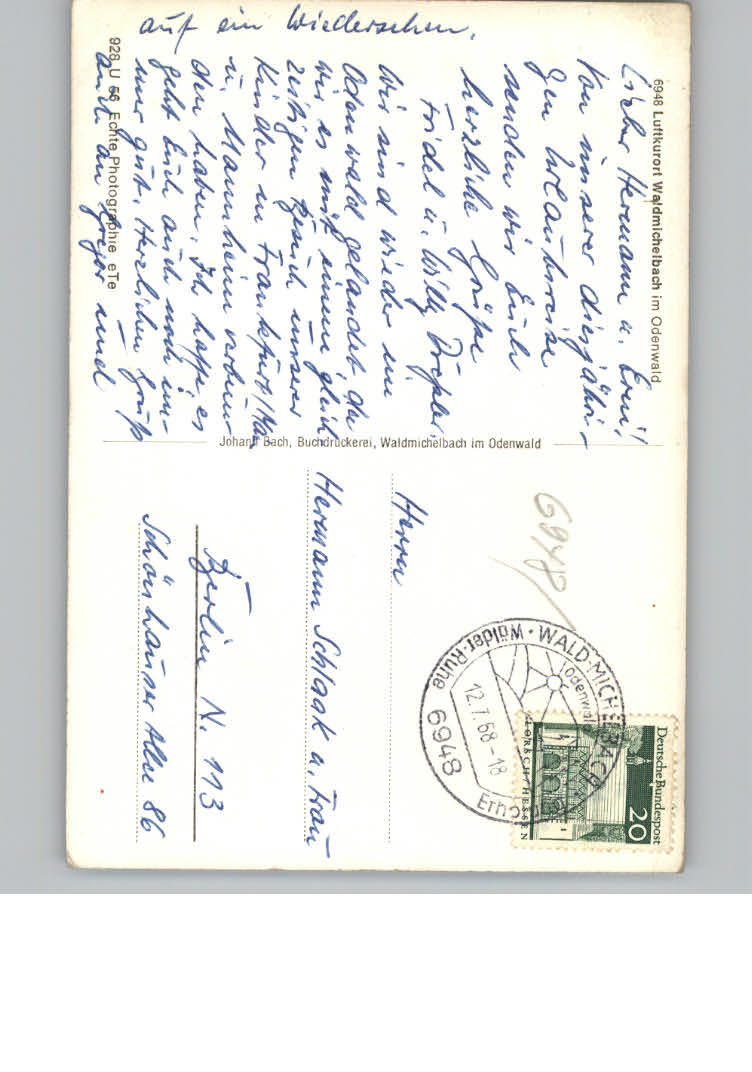 6948 Luftkurort Waldmichelbach im Odenwald
Lieber Hermann u. Erni!
Von unserer diesjähri-
gen Urlaubsreise
senden wir Euch
herzliche Grüße
Fridel u. Willy
Wir sind wieder im
Odenwald gelandet da
wir es mit einem gleich-
zeitigen Besuch unserer
Kinder in Frankfurt/Ma.
u. Mannheim verbin-
den haben. Ich hoffe, es
geht Euch auch noch im-
mer gut. Herzlichen Gruß
auch an und
auf ein Wiedersehen.
928 U 66 Echte Photographie eTe
Johann Bach, Buchdruckerei, Waldmichelbach im Odenwald
6948/
WALD-MICHELBACH
Odenwald
12.7.68-18
6948
Wälder-Ruhe
Deutsche Bundespost
20
LORSCH/HESSEN
Herrn
Hermann Schlaak u. Frau
Berlin N. 113
Schönhauser Allee 86